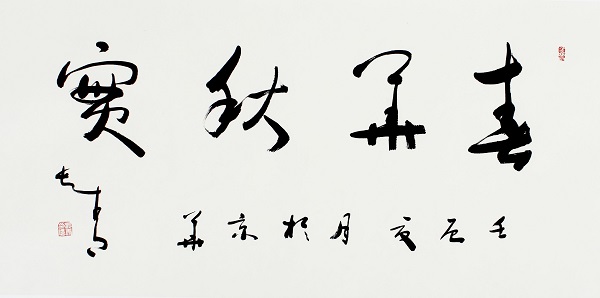 春華秋實
壬辰夏月於京華